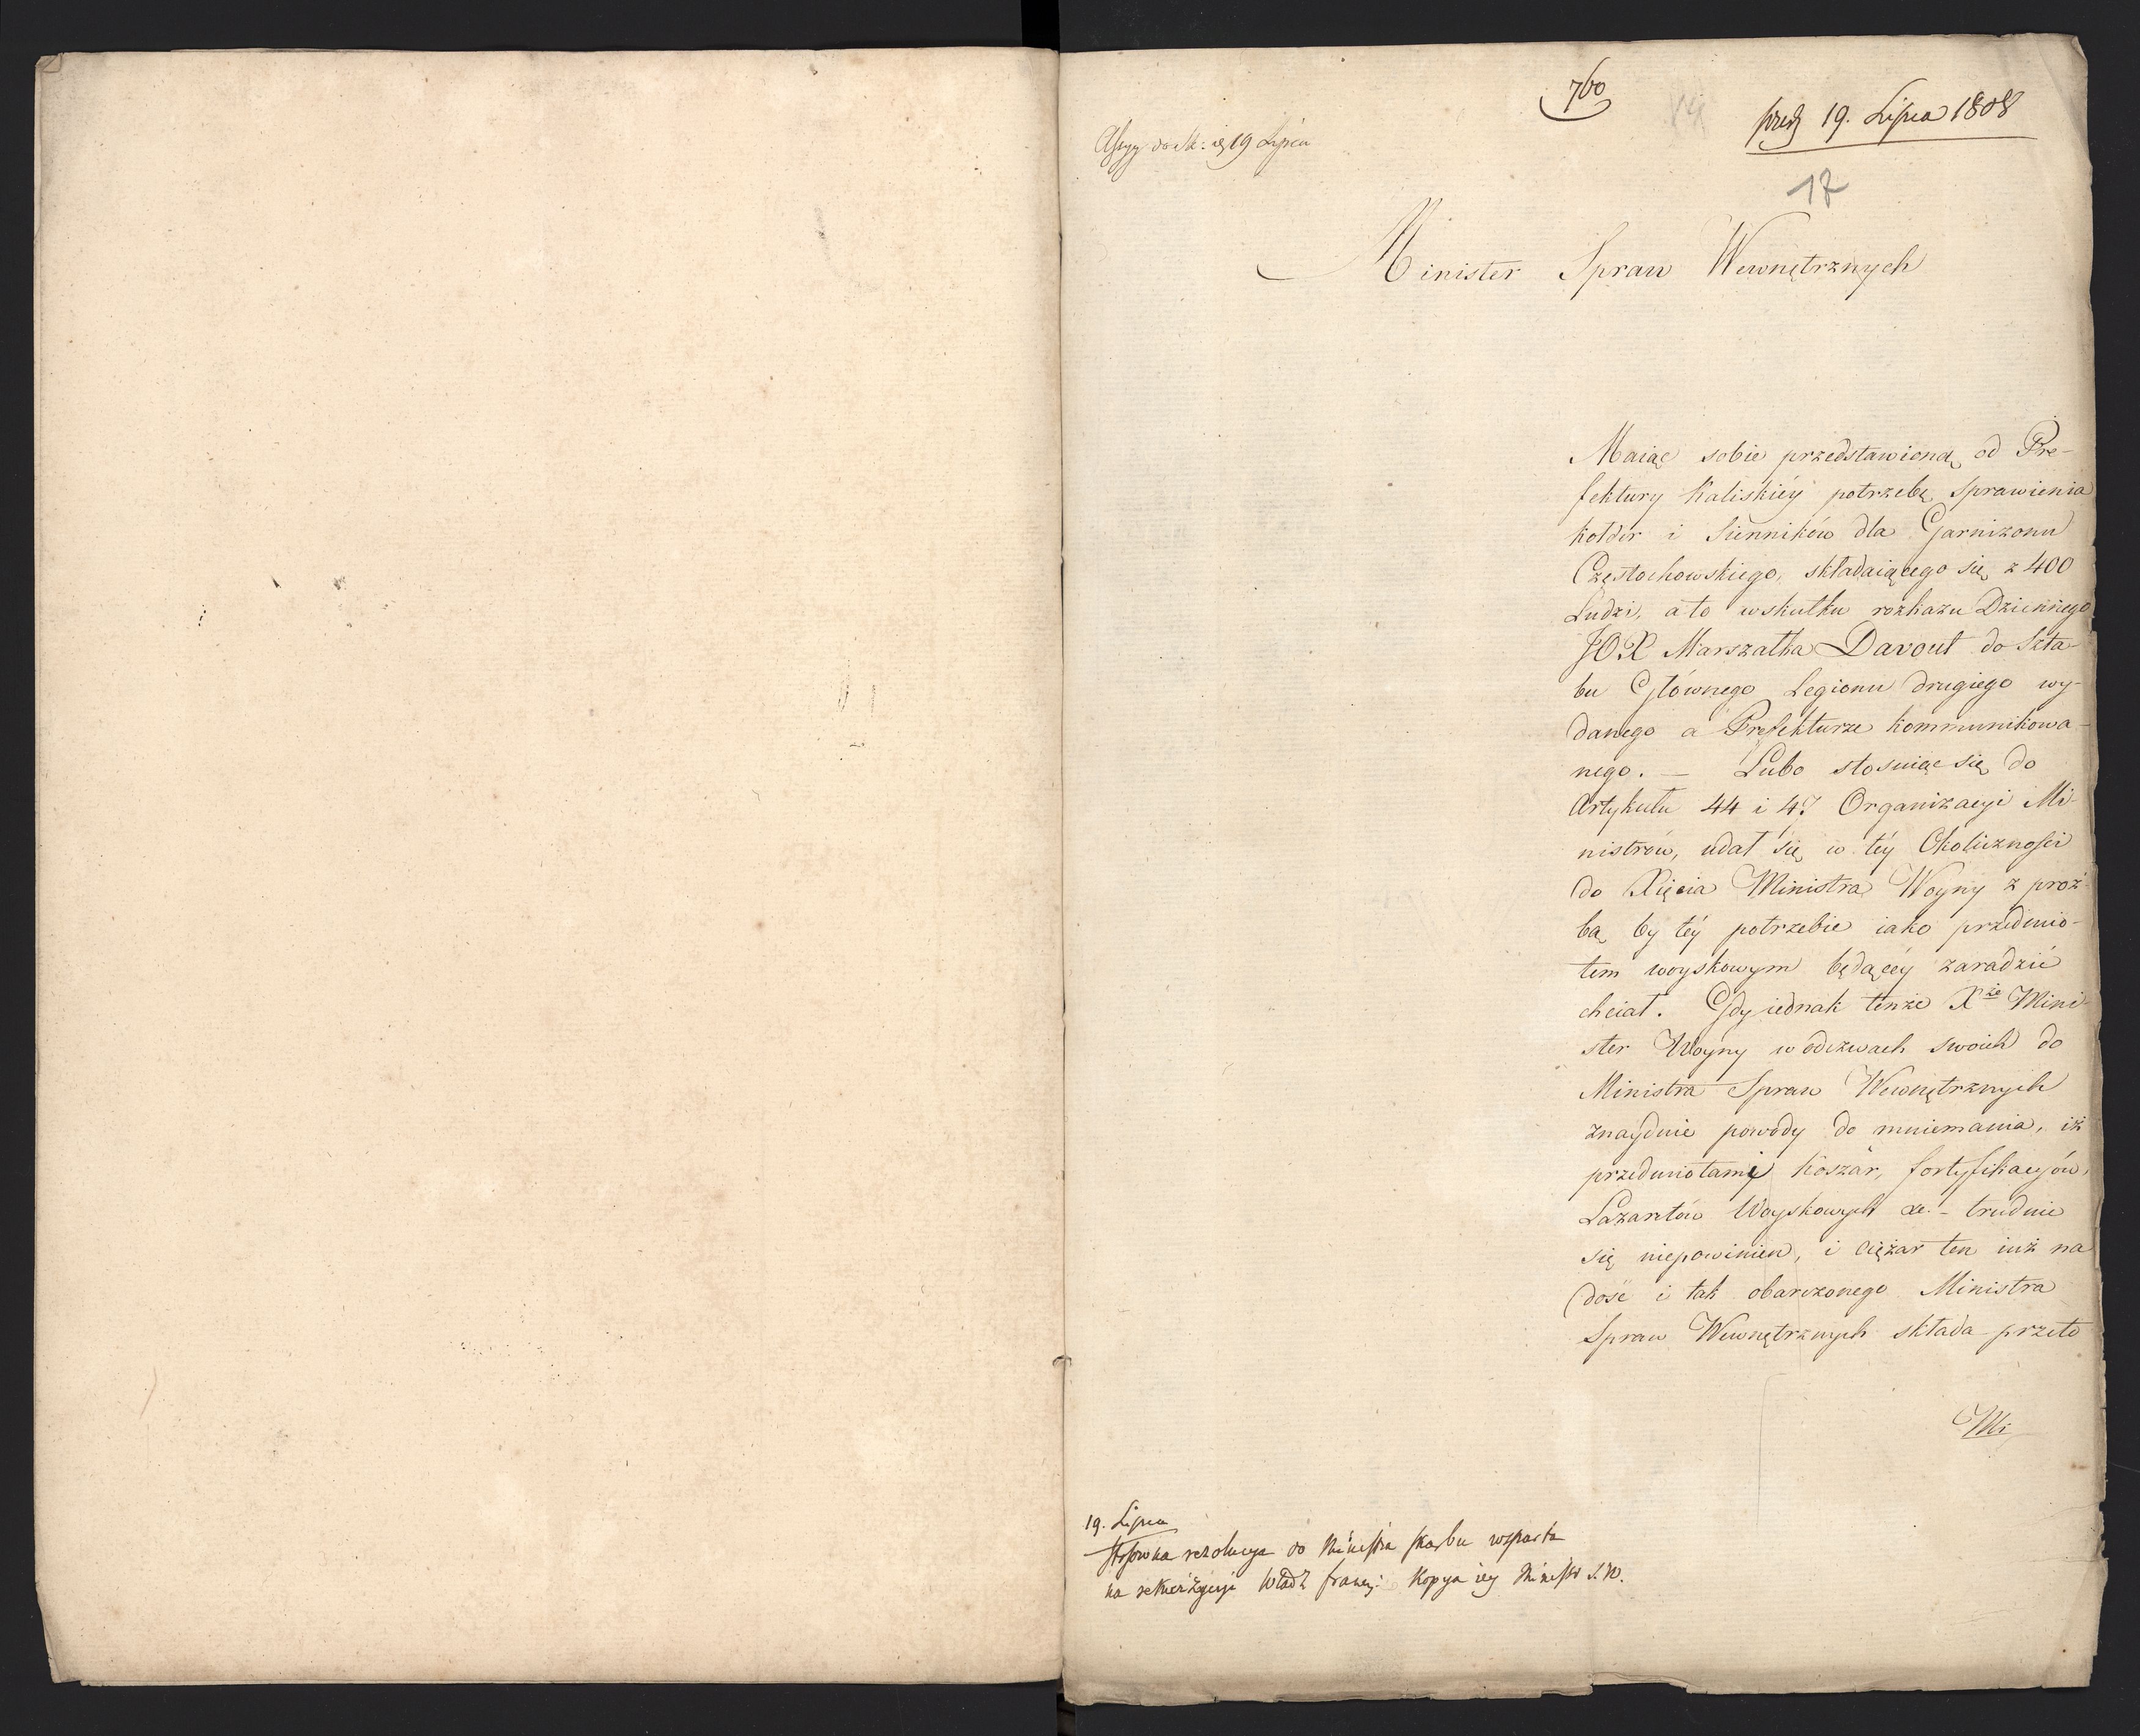 760
19. Lipca 1808
19 Lipca
17
Minister Spraw Wewnętrznych
Maiąc sobie przedstawioną od Pre-
fektury Kaliskiéy potrzebę sprawienia
kołder i Sienników dla Garnizonu
Częstochowskiego, składaiącego się z 400
Ludzi, a to wskutku rozkazu Dziennego
JO. X Marszałka Davout do Szta-
bu Głównego Legionu drugiego wy-
danego a Prefekturze kommunikowa-
nego. — Lubo stosuiąc się do
Artykułu 44 i 47 Organizacyi Mi-
nistrów, udał się w téy Okoliczności
do Xięcia Ministra Woyny z proź-
bą, by téy potrzebie iako przedmio-
tem woyskowym będącéy zaradzić
chciał. Gdy iednak tenże Xże Mini-
ster Woyny w odezwach swoich do
Ministra Spraw Wewnętrznych
znayduie powody do mniemania, iż
przedmiotami koszar, fortyfikacyów,
Lazaretów Woyskowych &c. - trudnić
się niepowinien, i ciężar ten iuż na
dość i tak obarczonego Ministra
Spraw Wewnętrznych składa przeto
Mi
19. Lipca
Stosowna rezolucya do Ministra skarbu wsparta
na rekwizycyi Władz francuz: Kopya iey Ministr S. W.